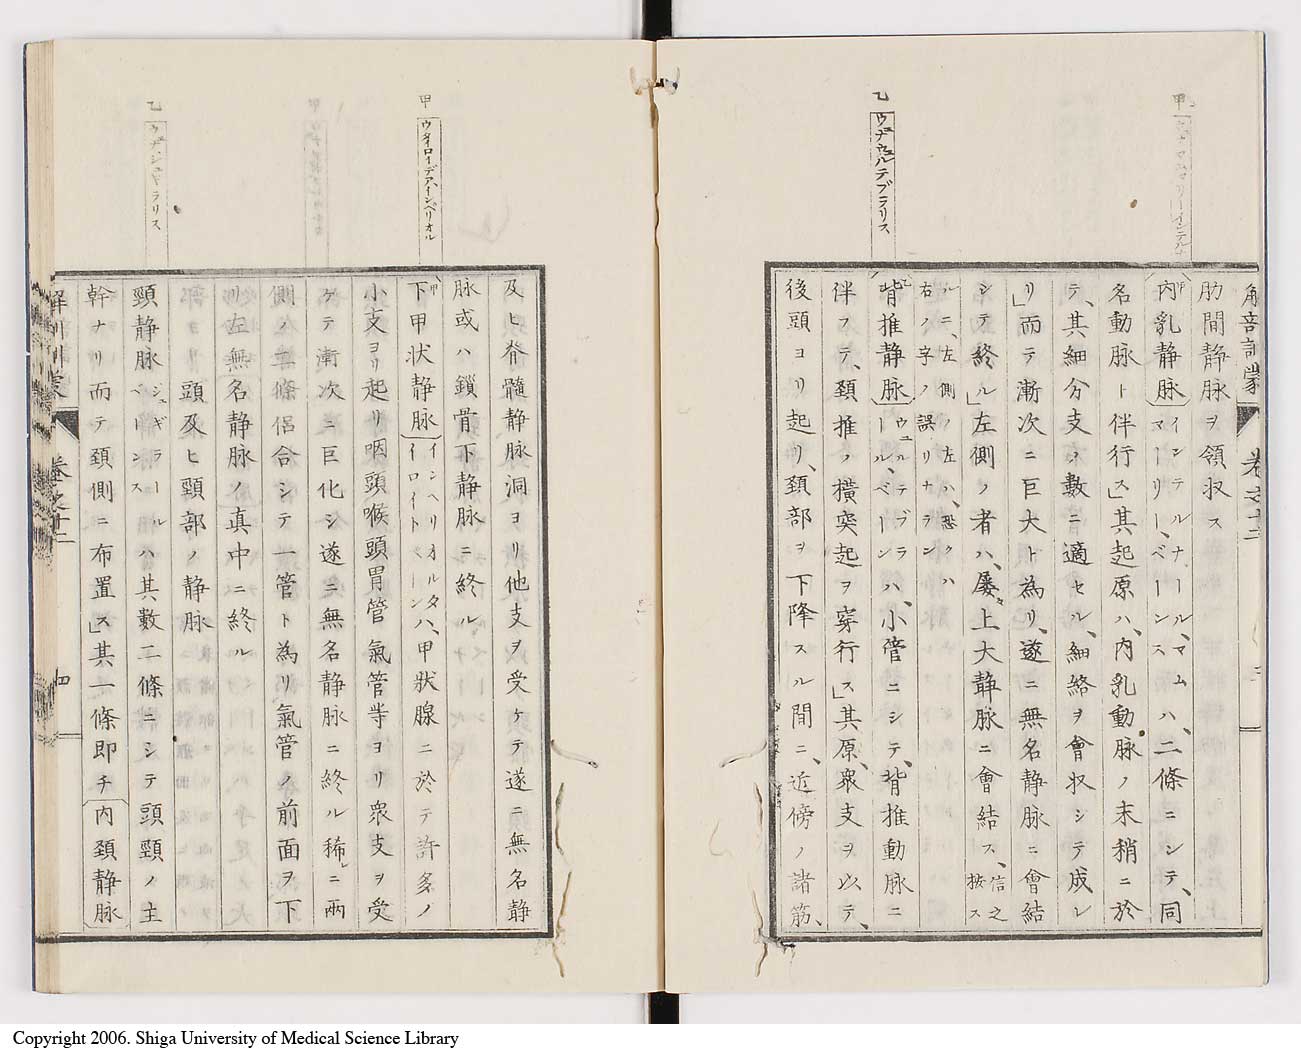 甲
乙
ウェナウェルテブラリス
解剖訓蒙 巻之十二
肋間静脉ヲ領収ス
甲内乳静脉 インテルナール、マムマーリー、ベーンス ハ、二條ニシテ、同
名動脉ト伴行ス」其起原ハ、内乳動脉ノ末稍ニ於
テ、其細分支ノ數ニ適セル、細絡ヲ會収シテ成レ
リ」而テ漸次ニ巨大ト為リ、遂ニ無名静脉ニ會結
シテ終ル」左側ノ者ハ、屡〻上大静脉ニ會結ス、信之按ス
ルニ、左側ノ左ハ、恐クハ右ノ字ノ誤リナラン
乙背推静脉 ウェルテブラール、ベーン ハ、小管ニシテ、背推動脉ニ
伴フテ、頚推ノ横突起ヲ穿行ス」其原、衆支ヲ以テ、
後頭ヨリ起リ、頚部ヲ下降スル間ニ、近傍ノ諸筋、
甲
ウタイロイデアインペリオル
乙
ウェナジュギラリス
及ヒ脊髓静脉洞ヨリ他支ヲ受ケテ、遂ニ無名静
脉或ハ鎖骨下静脉ニ終ル
甲下甲状静脉 インヘリオルタイロイトベーン ハ、甲状腺ニ於テ許多ノ
小支ヨリ起リ咽頭喉頭胃管氣管等ヨリ衆支ヲ受
ケテ漸次ニ巨化シ遂ニ無名静脉ニ終ル稀レニ兩
側ノ二條侶合シテ一管ト為リ氣管ノ前面ヲ下
リ左無名静脉ノ真中ニ終ル
頭及ヒ頸部ノ静脉
頸静脉 ジュギラールベーンス ハ其數二條ニシテ頭頸ノ主
幹ナリ而テ頚側ニ布置ス」其一條即チ内頚静脉
巻之十二
四
Copyright 2006. Shiga University of Medical Science Library